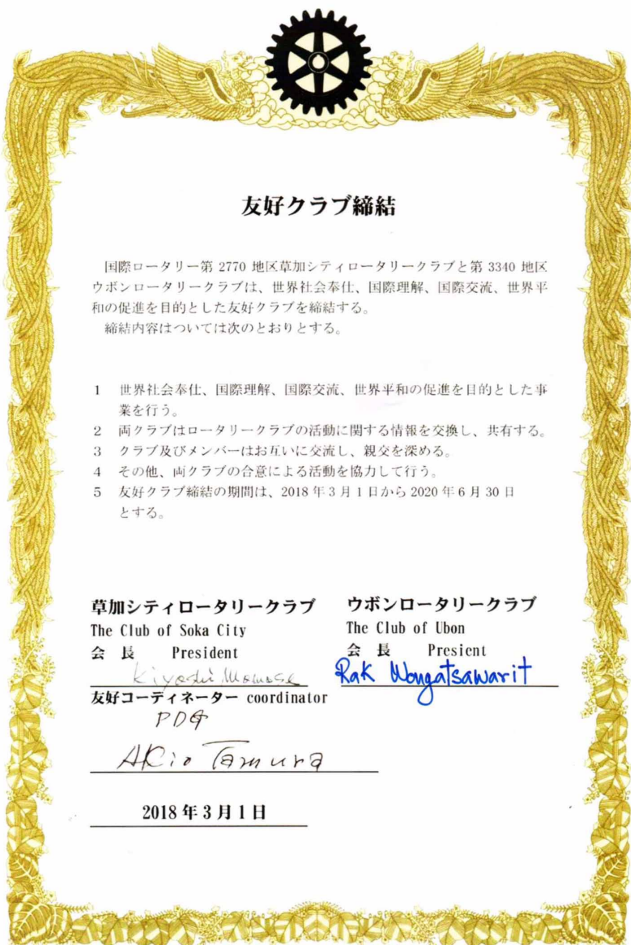 友好クラブ締結
国際ロータリー第 2770 地区草加シティロータリークラブと第 3340 地区
ウボンロータリークラブは、世界社会奉仕、国際理解、国際交流、世界平
和の促進を目的とした友好クラブを締結する。
締結内容はついては次のとおりとする。
1 世界社会奉仕、国際理解、国際交流、世界平和の促進を目的とした事
業を行う。
2 両クラブはロータリークラブの活動に関する情報を交換し、共有する。
3 クラブ及びメンバーはお互いに交流し、親交を深める。
4 その他、両クラブの合意による活動を協力して行う。
5 友好クラブ締結の期間は、2018 年 3 月 1 日から 2020 年 6 月 30 日
とする。
草加シティロータリークラブ
The Club of Soka City
会 長 President
Kiyoshi Momose
友好コーディネーター coordinator
PDG
Akio Tamura
2018 年 3 月 1 日
ウボンロータリークラブ
The Club of Ubon
会 長 Presient
Rak Wongatsawarit